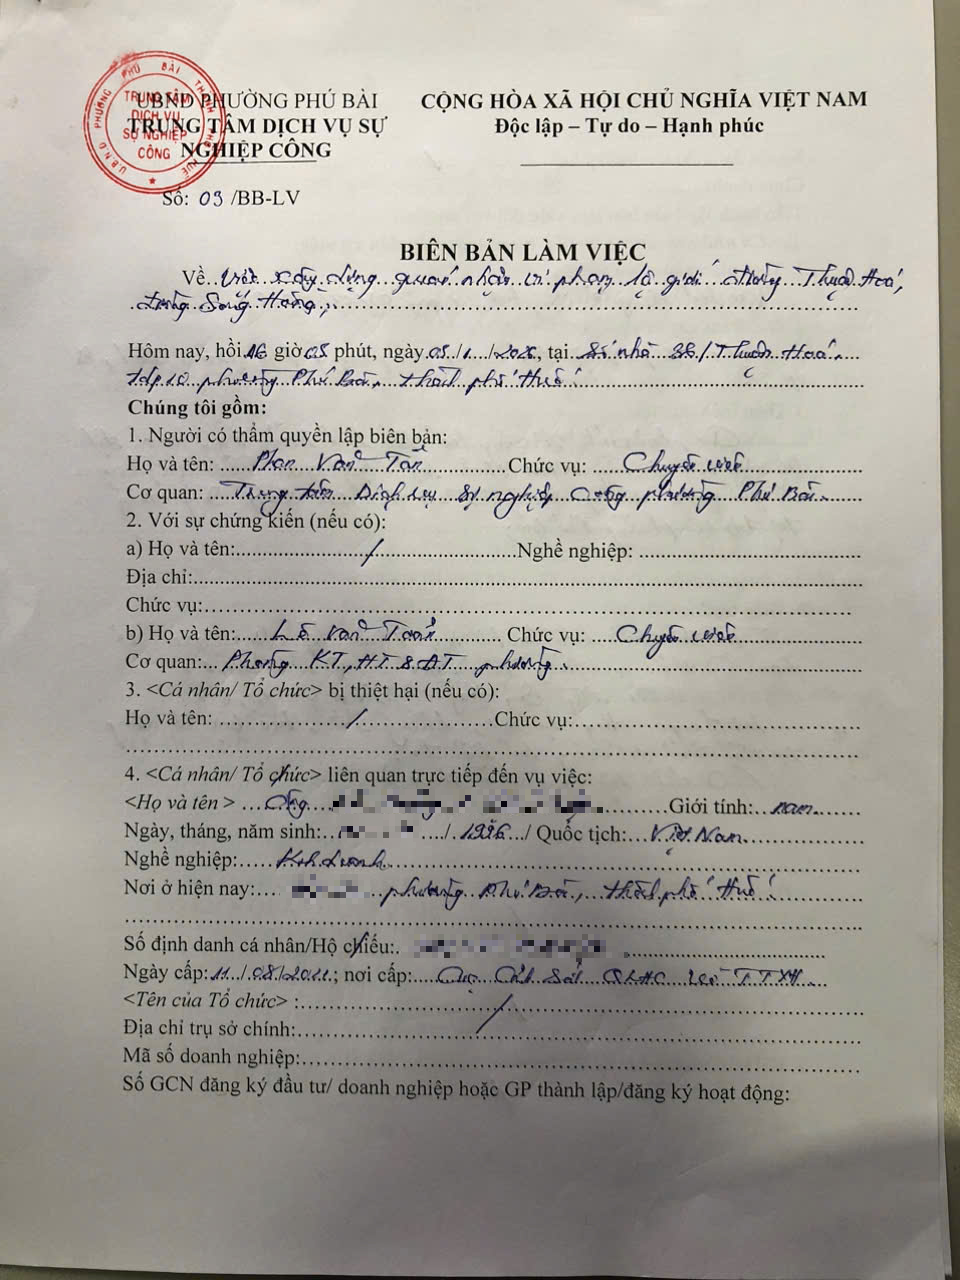 U.B.N.D PHƯỜNG PHÚ BÀI THÀNH PHỐ HUẾ
TRUNG TÂM
DỊCH VỤ
SỰ NGHIỆP
CÔNG
UBND PHƯỜNG PHÚ BÀI
TRUNG TÂM DỊCH VỤ SỰ
NGHIỆP CÔNG
CỘNG HÒA XÃ HỘI CHỦ NGHĨA VIỆT NAM
Độc lập – Tự do – Hạnh phúc
Số: 03 /BB-LV
BIÊN BẢN LÀM VIỆC
Về Việc xây dựng quán nhậu vi phạm lộ giới đường Thuận Hoá,
đường Sóng Hồng,
Hôm nay, hồi 16 giờ 05 phút, ngày 05/1/2026, tại Số nhà 36/ Thuận Hoá
tdp 10 phường Phú Bài, thành phố Huế
Chúng tôi gồm:
1. Người có thẩm quyền lập biên bản:
Họ và tên: Phan Văn Chức vụ: Chuyên viên
Cơ quan: Trung tâm Dịch vụ Sự nghiệp Công phường Phú Bài.
2. Với sự chứng kiến (nếu có):
a) Họ và tên: / Nghề nghiệp:
Địa chỉ:
Chức vụ:
b) Họ và tên: Lê Văn Chức vụ: Chuyên viên
Cơ quan: Phòng KT, HT & ĐT phường.
3. <Cá nhân/ Tổ chức> bị thiệt hại (nếu có):
Họ và tên: / Chức vụ:
4. <Cá nhân/ Tổ chức> liên quan trực tiếp đến vụ việc:
<Họ và tên > Ông Giới tính: nam
Ngày, tháng, năm sinh: / 1996 / Quốc tịch: Việt Nam
Nghề nghiệp: Kinh doanh
Nơi ở hiện nay: phường Phú Bài, thành phố Huế
Số định danh cá nhân/Hộ chiếu:
Ngày cấp: 11/08/2022; nơi cấp: Cục Cảnh Sát QLHC về TTXH
<Tên của Tổ chức> : /
Địa chỉ trụ sở chính:
Mã số doanh nghiệp:
Số GCN đăng ký đầu tư/ doanh nghiệp hoặc GP thành lập/đăng ký hoạt động: